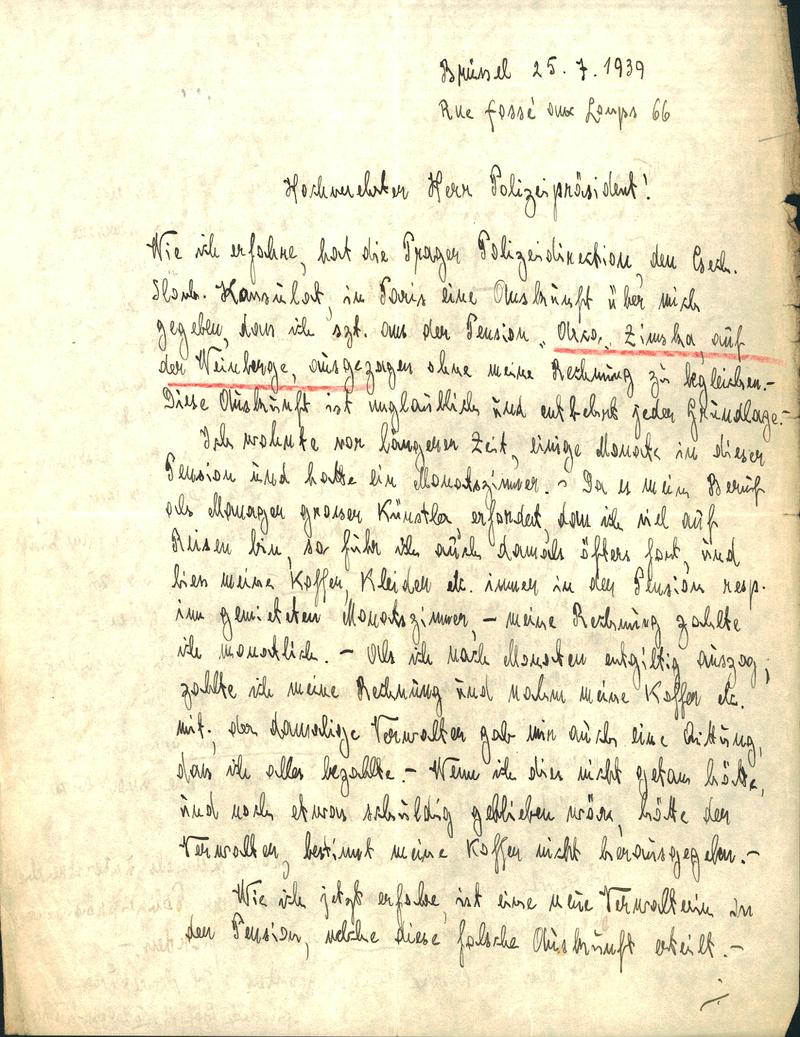 Brüssel 25. 7. 1939
Rue fossé aux Loups 66
Hochverehrter Herr Polizeipräsident!
Wie ich erfahre, hat die Prager Polizeidirektion, den Csech.
Slowk. Konsulat, in Paris eine Auskunft über mich
gegeben, dass ich szt. aus der Pension „Arco„ Zimska, auf
der Weinberge, ausgezogen ohne meine Rechnung zu begleichen.-
Diese Auskunft ist unglaublich und entbehrt jeder Grundlage.-
Ich wohnte vor längerer Zeit, einige Monate in dieser
Pension und hatte ein Monatszimmer. - Da es mein Beruf
als Manager grosser Künstler erfordert, dass ich viel auf
Reisen bin, so fuhr ich auch damals öfters fort, und
liess meine Koffer, Kleider etc. immer in der Pension resp.
im gemieteten Monatszimmer, - meine Rechnung zahlte
ich monatlich. - Als ich nach Monaten entgiltig auszog,
zahlte ich meine Rechnung und nahm meine Koffer etc.
mit, der damalige Verwalter gab mir auch eine Quittung,
dass ich alles bezahlte.- Wenn ich dies nicht getan hätte,
und noch etwas schuldig geblieben wäre, hätte der
Verwalter, bestimt meine Koffer nicht herausgegeben.-
Wie ich jetzt erfahre, ist eine neue Verwalterin in
der Pension, welche diese falsche Auskunft erteilt.-